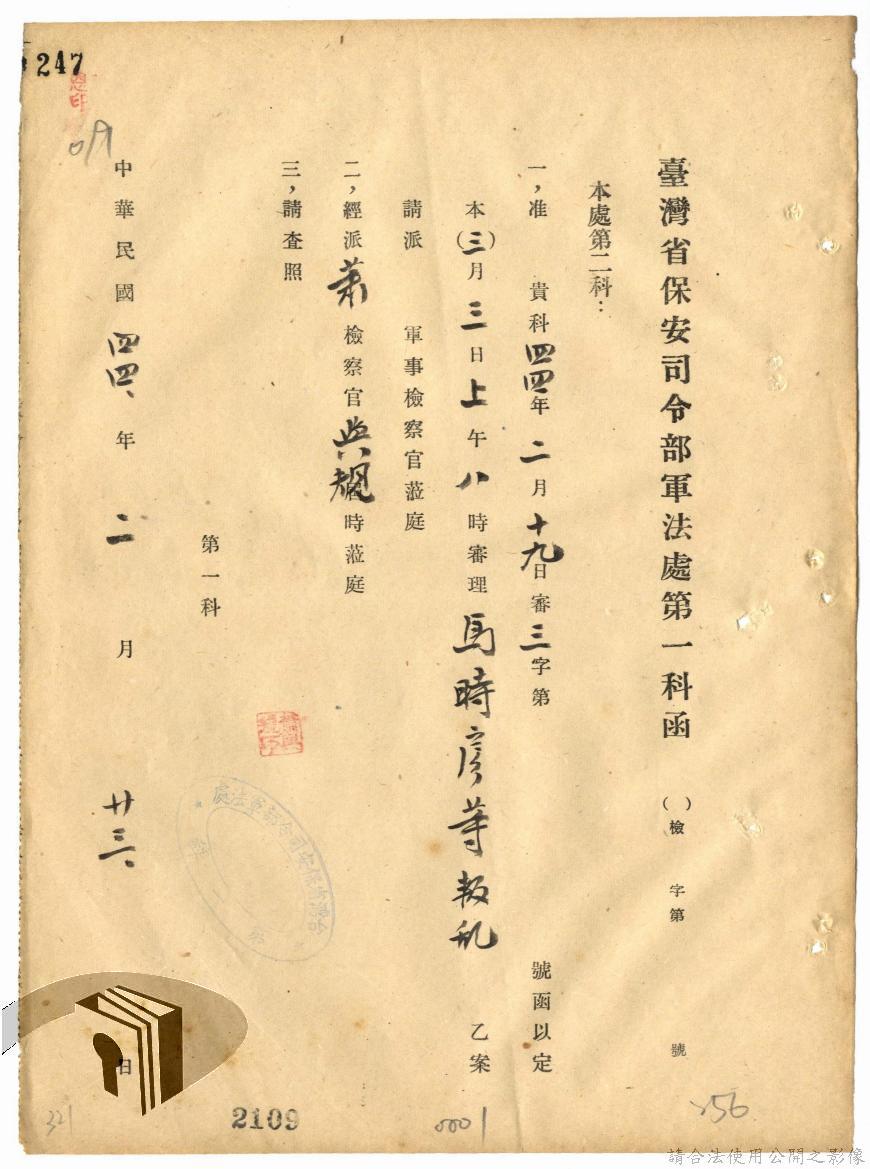 247
臺灣省保安司令部軍法處第一科函 ( )檢 字第 號
本處第二科：
一，准 貴科四四年二月十九日審三字第 號函以定
本(三)月三日上午八時審理馬時彥等叛乱 乙案
請派 軍事檢察官蒞庭
二，經派蕭 檢察官與規屆時蒞庭
三，請查照
第一科
中華民國四四、年二月廿三、日
台灣省保安司令部軍法處
2109
0001
156
321
請合法使用公開之影像